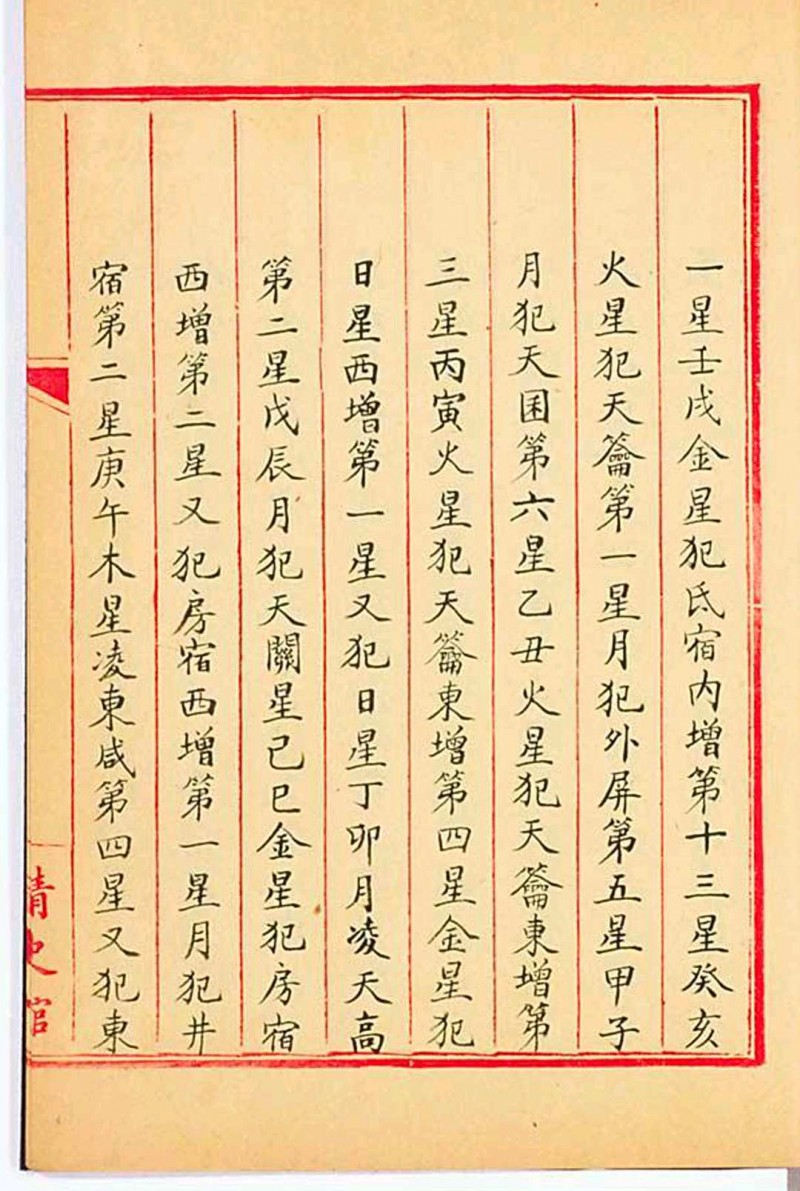 一星壬戌金星犯氐宿内增第十三星癸亥
火星犯天籥第一星月犯外屏第五星甲子
月犯天囷第六星乙丑火星犯天籥東增第
三星丙寅火星犯天籥東增第四星金星犯
日星西增第一星又犯日星丁卯月凌天高
第二星戊辰月犯天關星己巳金星犯房宿
西增第二星又犯房宿西增第一星月犯井
宿第二星庚午木星凌東咸第四星又犯東
清史館